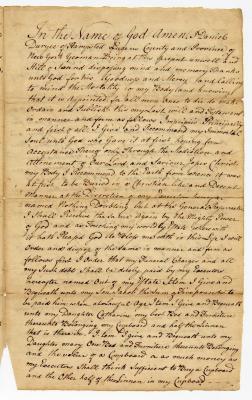 In the Name of God Amen. I Daniel
Duryee of Hempsted Queens County and Province of
New York Yeoman Being at this present unwell and
still of Sound disposing mind and memory Thanks
unto God for his Goodness and Mercy and Calling
to mind the Mortality of my Body and knowing
that it is appointed for all men once to die do make
Ordain and Institute this my Last Will and Testament
in manner and form as follows Imprimis Principally
and first of all I Give and Recommend my Immortal
Soul unto God who Gave it at first hoping for
Acceptance Mercy and Pardon through the Intercession and
Attonement of our Lord and Saviour Jesus Christ
my Body I Recommend to the Earth from whence it was
at first to be Buried in a Christian like and Decent
Manner at the Discretion of my Executors hereafter
named Nothing Doubting but at the General Resurrection
I Shall Receive the same Again by the Mighty Power
of God and as touching my worldly Estate wherewith
it hath Pleased God to bless me with in this Life I will
Order and dispose of the Same in manner and form as
follows first I Order that my Funeral Charges and all
my Just debts Shall be duly paid by my Executors
hereafter named Out of my Estate Item I Give and
Bequeath unto my
be paid him when Item I Give and Bequeath
unto my Daughter Catharine my best Bed and Furniture
thereunto Belonging my Cupboard and half the Linnen
that is therein Item I Give and Bequeath unto my
Daughter Mary One Bed and Furniture thereunto Belonging
and the value of a Cupboard or as much money as
my Executors Shall think Sufficient to Buy a Cupboard
and the Other half of the Linnen in my Cupboard